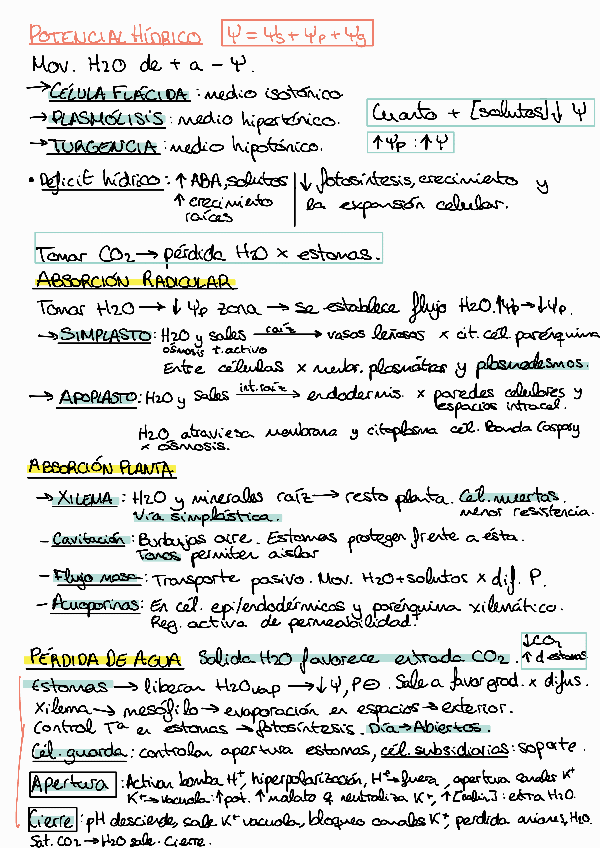 POTENCIAL HÍDRICO Ψ = Ψs + Ψp + Ψg
Mov. H2O de + a - Ψ.
→ CÉLULA FLÁCIDA: medio isotónico.
→ PLASMÓLISIS: medio hipertónico. Cuanto + [solutos] ↓ Ψ
→ TURGENCIA: medio hipotónico. ↑Ψp : ↑Ψ
• Déficit hídrico: ↑ ABA, solutos ↓ fotosíntesis, crecimiento y
↑ crecimiento la expansión celular.
raíces
Tomar CO2 → pérdida H2O x estomas.
ABSORCIÓN RADICULAR
Tomar H2O → ↓ Ψp zona → se establece flujo H2O. ↑Ψp → ↓Ψp.
→ SIMPLASTO: H2O y sales raíz → vasos leñosos x cit. cél. parénquima
ósmosis t. activo
Entre células x membr. plasmáticas y plasmodesmos.
→ APOPLASTO: H2O y sales int. raíz → endodermis x paredes celulares y
espacios intracel.
H2O atraviesa membrana y citoplasma cél. Banda Caspary
x ósmosis.
ABSORCIÓN PLANTA
→ XILEMA: H2O y minerales raíz → resto planta. Cél. muertas.
Vía simplástica. menor resistencia.
- Cavitación: Burbujas aire. Estomas protegen frente a ésta.
Tonos permiten aislar
- Flujo masa: Transporte pasivo. Mov. H2O + solutos x dif. P.
- Acuaporinas: En cél. epi/endodérmicos y parénquima xilemático.
Reg. activa de permeabilidad.
PÉRDIDA DE AGUA Salida H2O favorece entrada CO2. ↓CO2
↑ d estomas
Estomas → liberan H2Ovap → ↓ Ψ, P⊖. Sale a favor grad. x difus.
Xilema → mesófilo → evaporación en espacios → exterior.
Control Tª en estomas → fotosíntesis. Día → Abiertos.
Cél. guarda: controlan apertura estomas, cél. subsidiarias: soporte.
Apertura: Activan bomba H+, hiperpolarización, H+ → fuera, apertura canales K+
K+ → vacuola: ↑pot. ↑malato q neutraliza K+, ↑[salin.]: entra H2O.
Cierre: pH desciende, sale K+ vacuola, bloqueo canales K+, perdida aniones, H2O.
Sat. CO2 → H2O sale. Cierre.